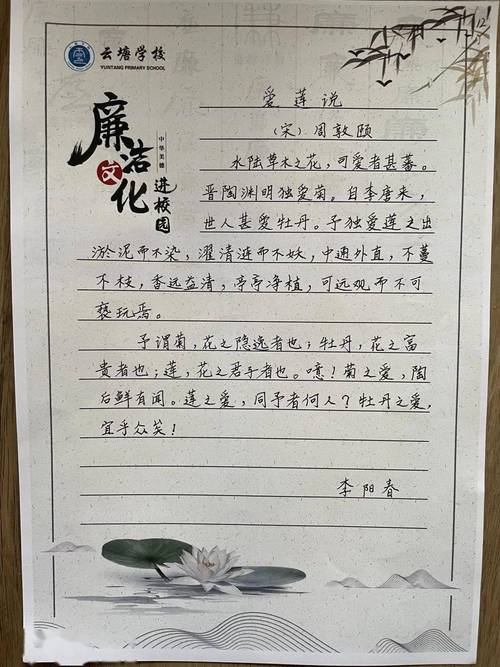 云塘学校
YUNTANG PRIMARY SCHOOL
廉洁文化
中华美德
进校园
爱莲说
（宋）周敦颐
水陆草木之花，可爱者甚蕃。
晋陶渊明独爱菊。自李唐来，
世人甚爱牡丹。予独爱莲之出
淤泥而不染，濯清涟而不妖，中通外直，不蔓
不枝，香远益清，亭亭净植，可远观而不可
亵玩焉。
予谓菊，花之隐逸者也；牡丹，花之富
贵者也；莲，花之君子者也。噫！菊之爱，陶
后鲜有闻。莲之爱，同予者何人？牡丹之爱，
宜乎众矣！
李阳春